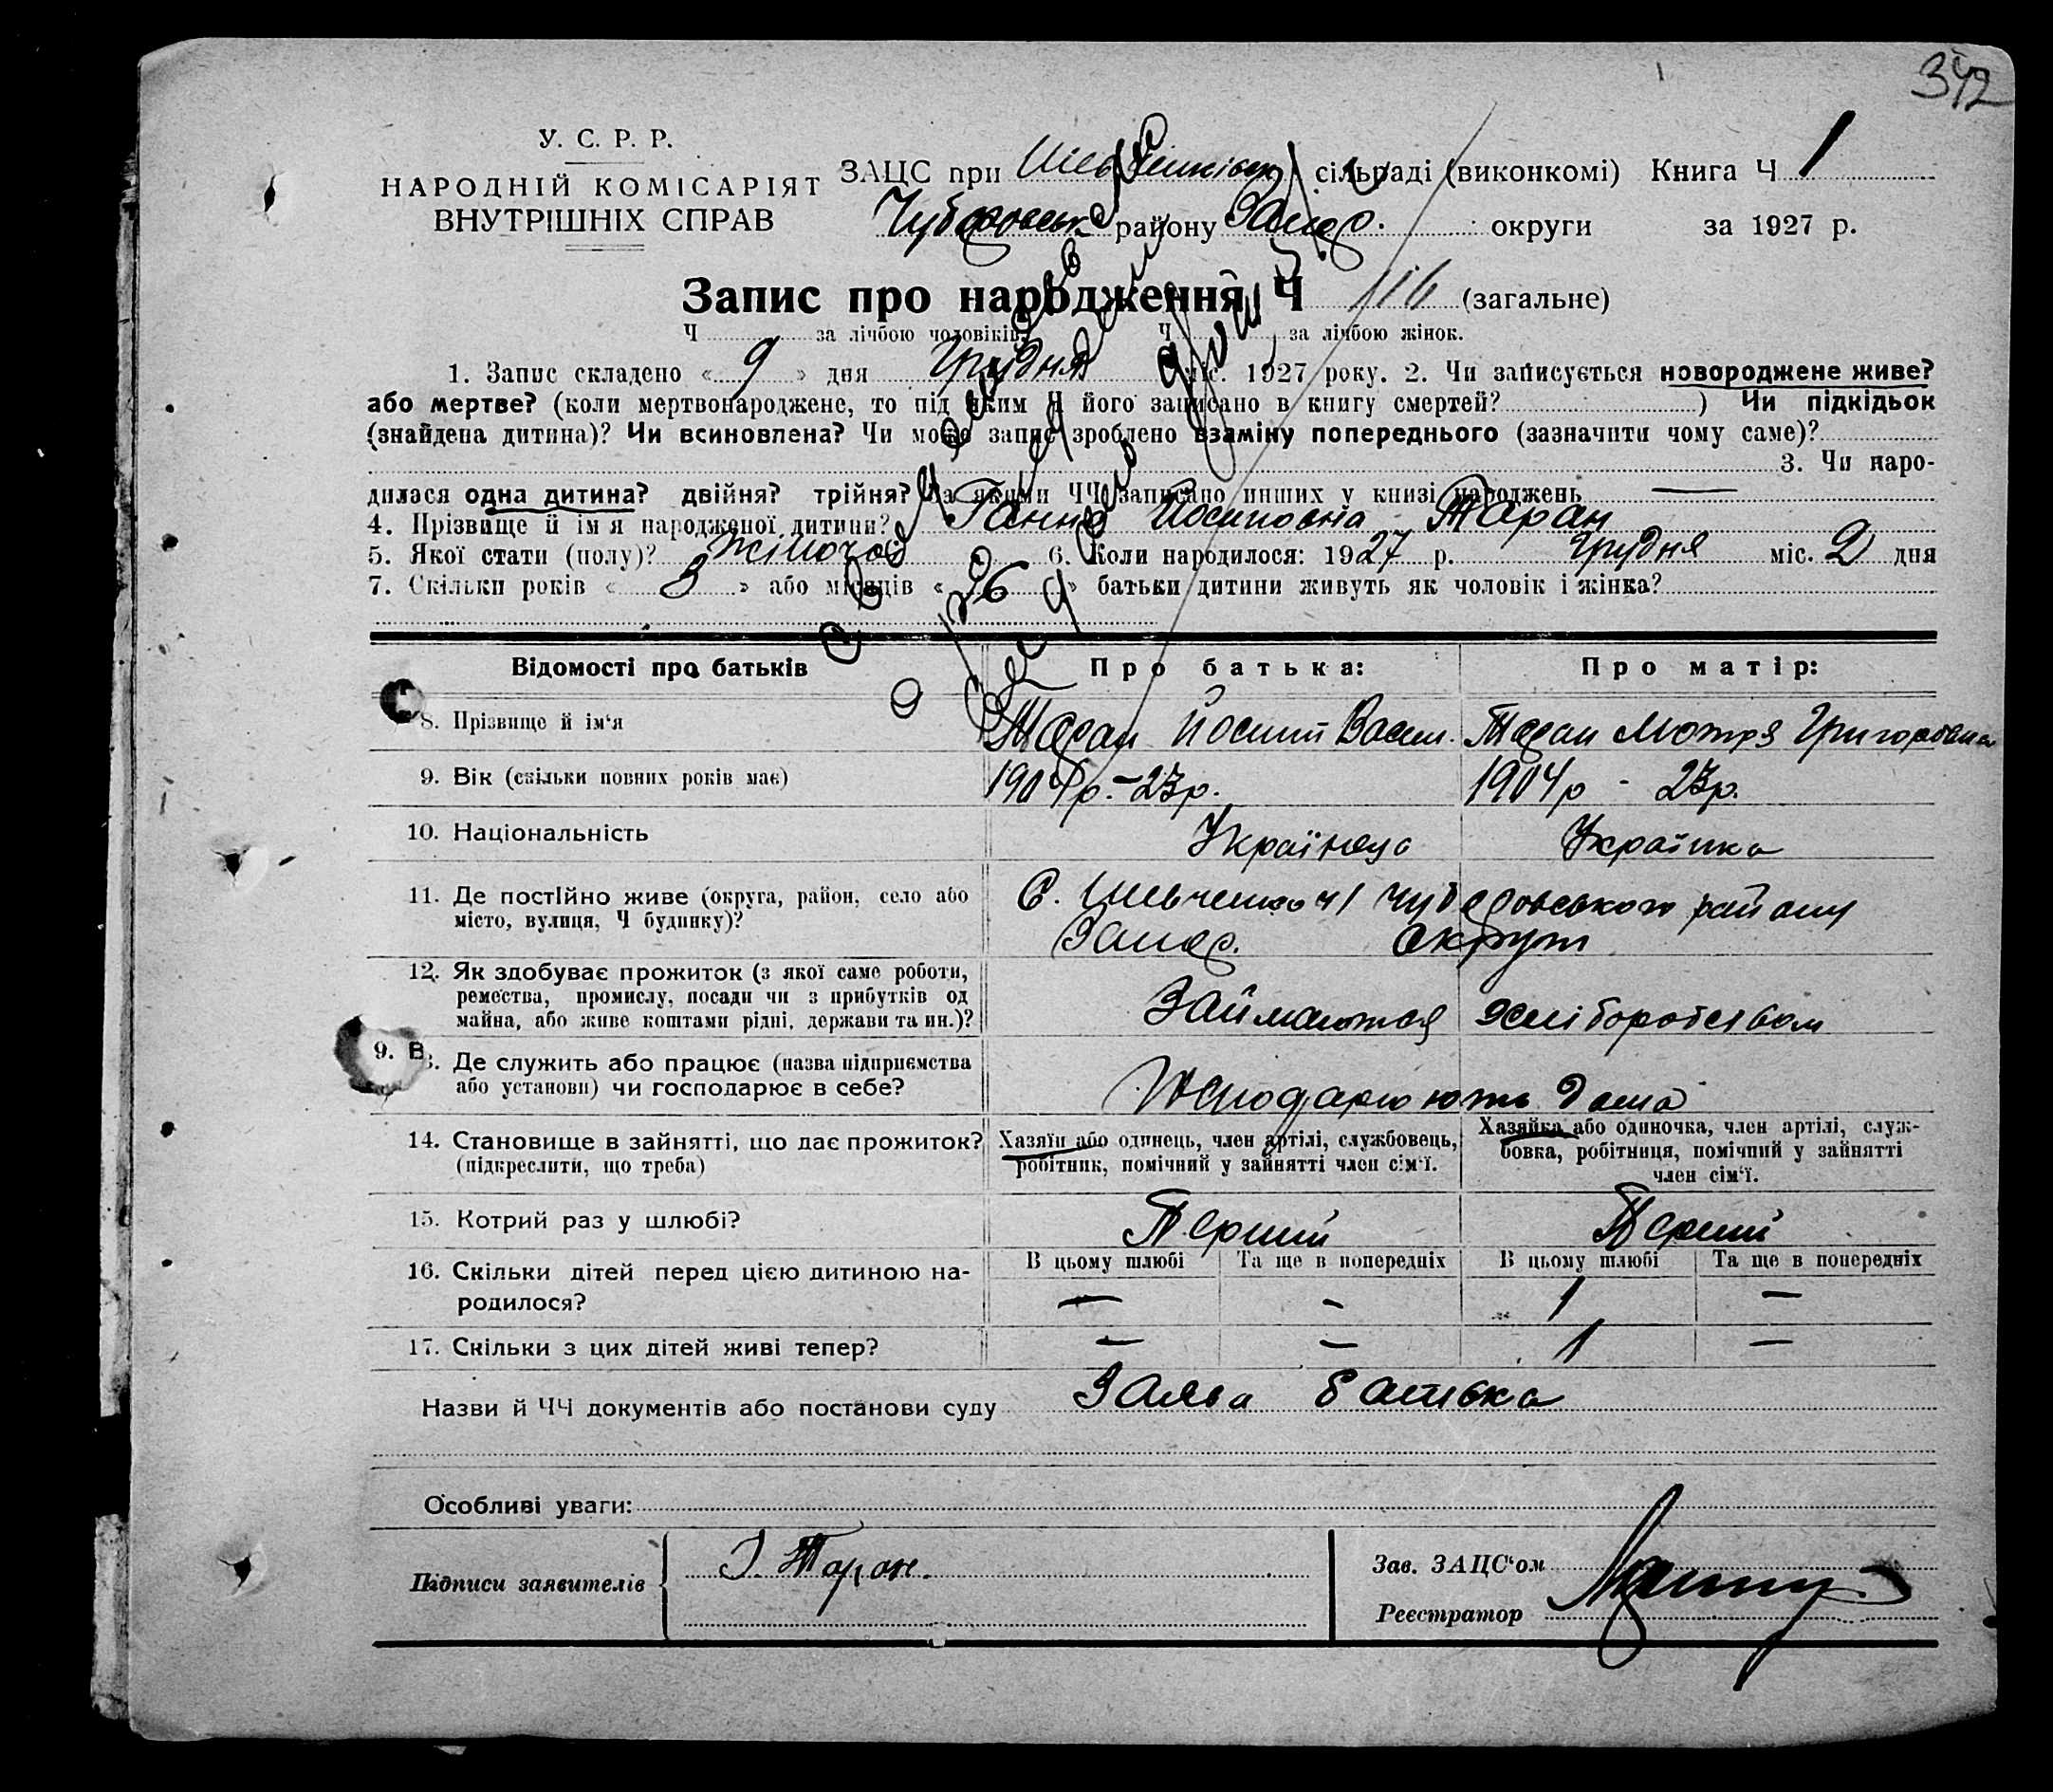 342
У. С. Р. Р.
НАРОДНІЙ КОМІСАРІЯТ
ВНУТРІШНІХ СПРАВ
ЗАЦС при Шевченківск. сільраді (виконкомі) Книга Ч 1
Чубаровськ району Запор. округи за 1927 р.
Запис про народження Ч 116 (загальне)
Ч за лічбою чоловіків. Ч за лічбою жінок.
1. Запис складено « 9 » дня Грудня міс. 1927 року. 2. Чи записується новороджене живе?
або мертве? (коли мертвонароджене, то під яким Ч його записано в книгу смертей? ) Чи підкідьок
(знайдена дитина)? Чи всиновлена? Чи може запис зроблено взаміну попереднього (зазначити чому саме)?
3. Чи наро-
дилася одна дитина? двійня? трійня? За якими ЧЧ записано инших у книзі народжень —
4. Прізвище й ім'я народженої дитини? Ганна Йосиповна Таран
5. Якої стати (полу)? Жіночої 6. Коли народилося: 1927 р. Грудня міс. 2 дня
7. Скільки років « 3 » або місяців « 36 » батьки дитини живуть як чоловік і жінка?
Відомості про батьків Про батька: Про матір:
8. Прізвище й ім'я Таран Йосип Васил. Таран Мотря Григоровна
9. Вік (скільки повних років має) 1904 р. - 23 р. 1904 р - 23 р.
10. Національність Українец Українка
11. Де постійно живе (округа, район, село або С. Шевченко ч1 Чубаровського району
місто, вулиця, Ч будинку)? Запор. округи
12. Як здобуває прожиток (з якої саме роботи,
ремества, промислу, посади чи з прибутків од Займаються хліборобством
майна, або живе коштами рідні, держави та ин.)?
9. В
Де служить або працює (назва підприємства
або установи) чи господарює в себе? Господарюють дома
14. Становище в зайнятті, що дає прожиток? Хазяїн або одинець, член артілі, службовець, Хазяйка або одиночка, член артілі, служ-
(підкреслити, що треба) робітник, помічний у зайнятті член сім'ї. бовка, робітниця, помічний у зайнятті
член сім'ї.
15. Котрий раз у шлюбі? Перший Перший
16. Скільки дітей перед цією дитиною на- В цьому шлюбі Та ще в попередніх В цьому шлюбі Та ще в попередніх
родилося? — - 1 —
17. Скільки з цих дітей живі тепер? — — 1 —
Назви й ЧЧ документів або постанови суду Заява батька
Особливі уваги:
Підписи заявителів Й. Таран. Зав. ЗАЦС'ом
Реєстратор